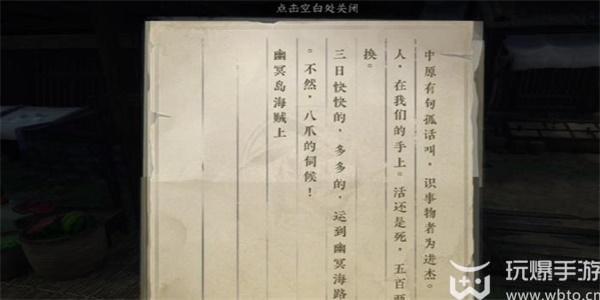 点击空白处关闭
中原有句孤话叫，识事物者为进杰。
人，在我们的手上。活还是死，五百两
换。
三日快快的，多多的，运到幽冥海路
。不然，八爪的伺候！
幽冥岛海贼上
玩爆手游
www.wbto.cn